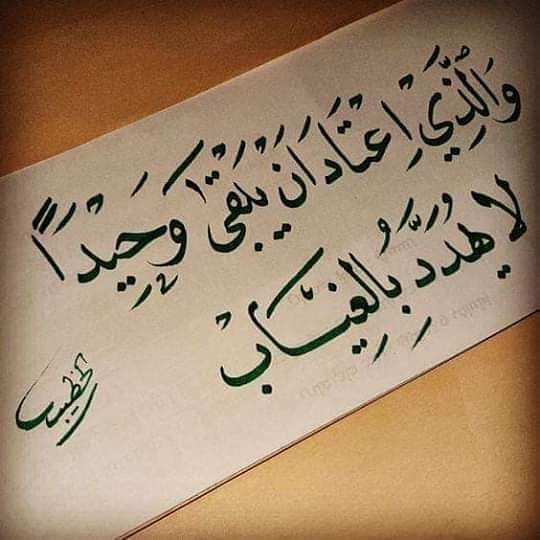 وَالَّذِي اعْتَادَ انْ يَبْقَى وَحِيْدَاً
لا يُهَدَّدُ بِالغِيَابِ
الخطيب